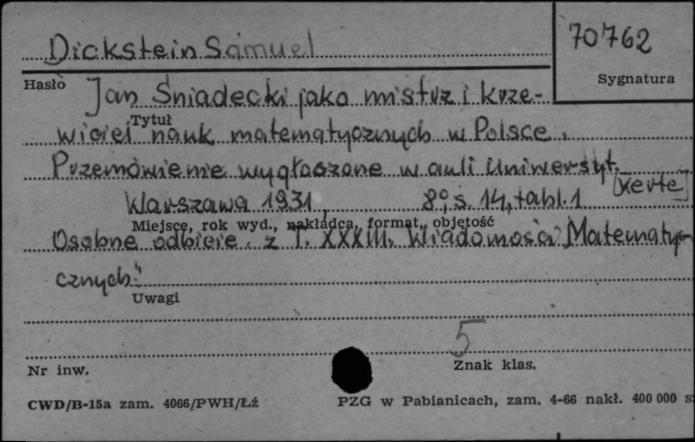 Dickstein Samuel
70762
Hasło
Sygnatura
Jan Śniadecki jako mistrz i krze-
Tytuł
wiciel nauk matematycznych w Polsce.
Przemówienie wygłoszone w auli Uniwersyt.
Warszawa 1931 8°, s. 14, tabl. 1
Miejsce, rok wyd., nakładca, format, objętość
Osobne odbicie z T. XXXIII. Wiadomości Matematy-
cznych"
Uwagi
5
Nr inw.
Znak klas.
CWD/B-15a zam. 4066/PWH/Łź
PZG w Pabianicach, zam. 4-66 nakł. 400 000